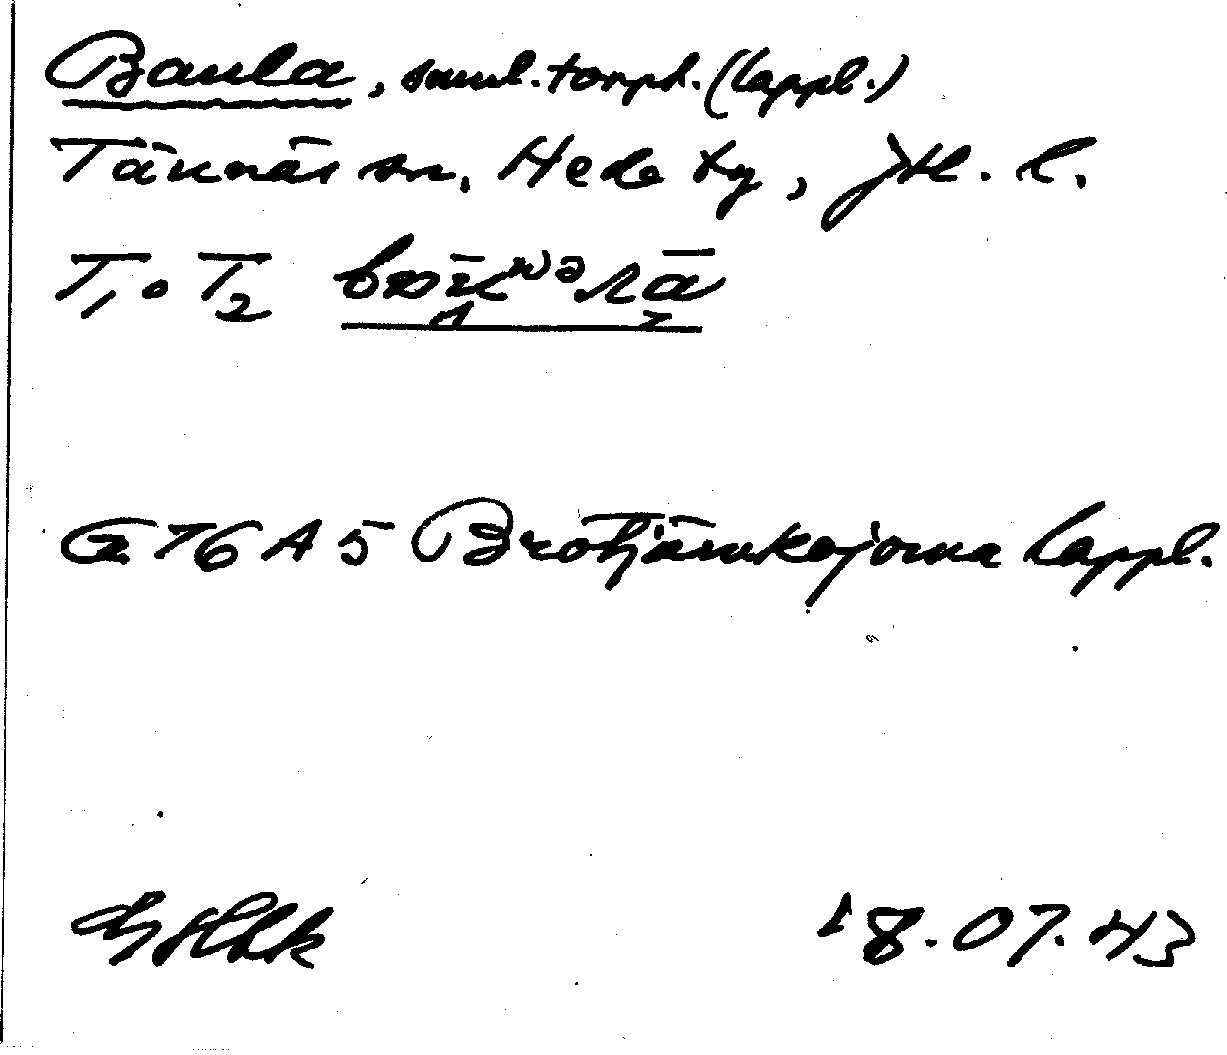 Baula, saml.torpl. (lappl.)
Tännäs sn, Hede tg, Jtl. l.
T1 o T2
G 76 A 5 Brotjärnkojorna lappl.
18.07.43